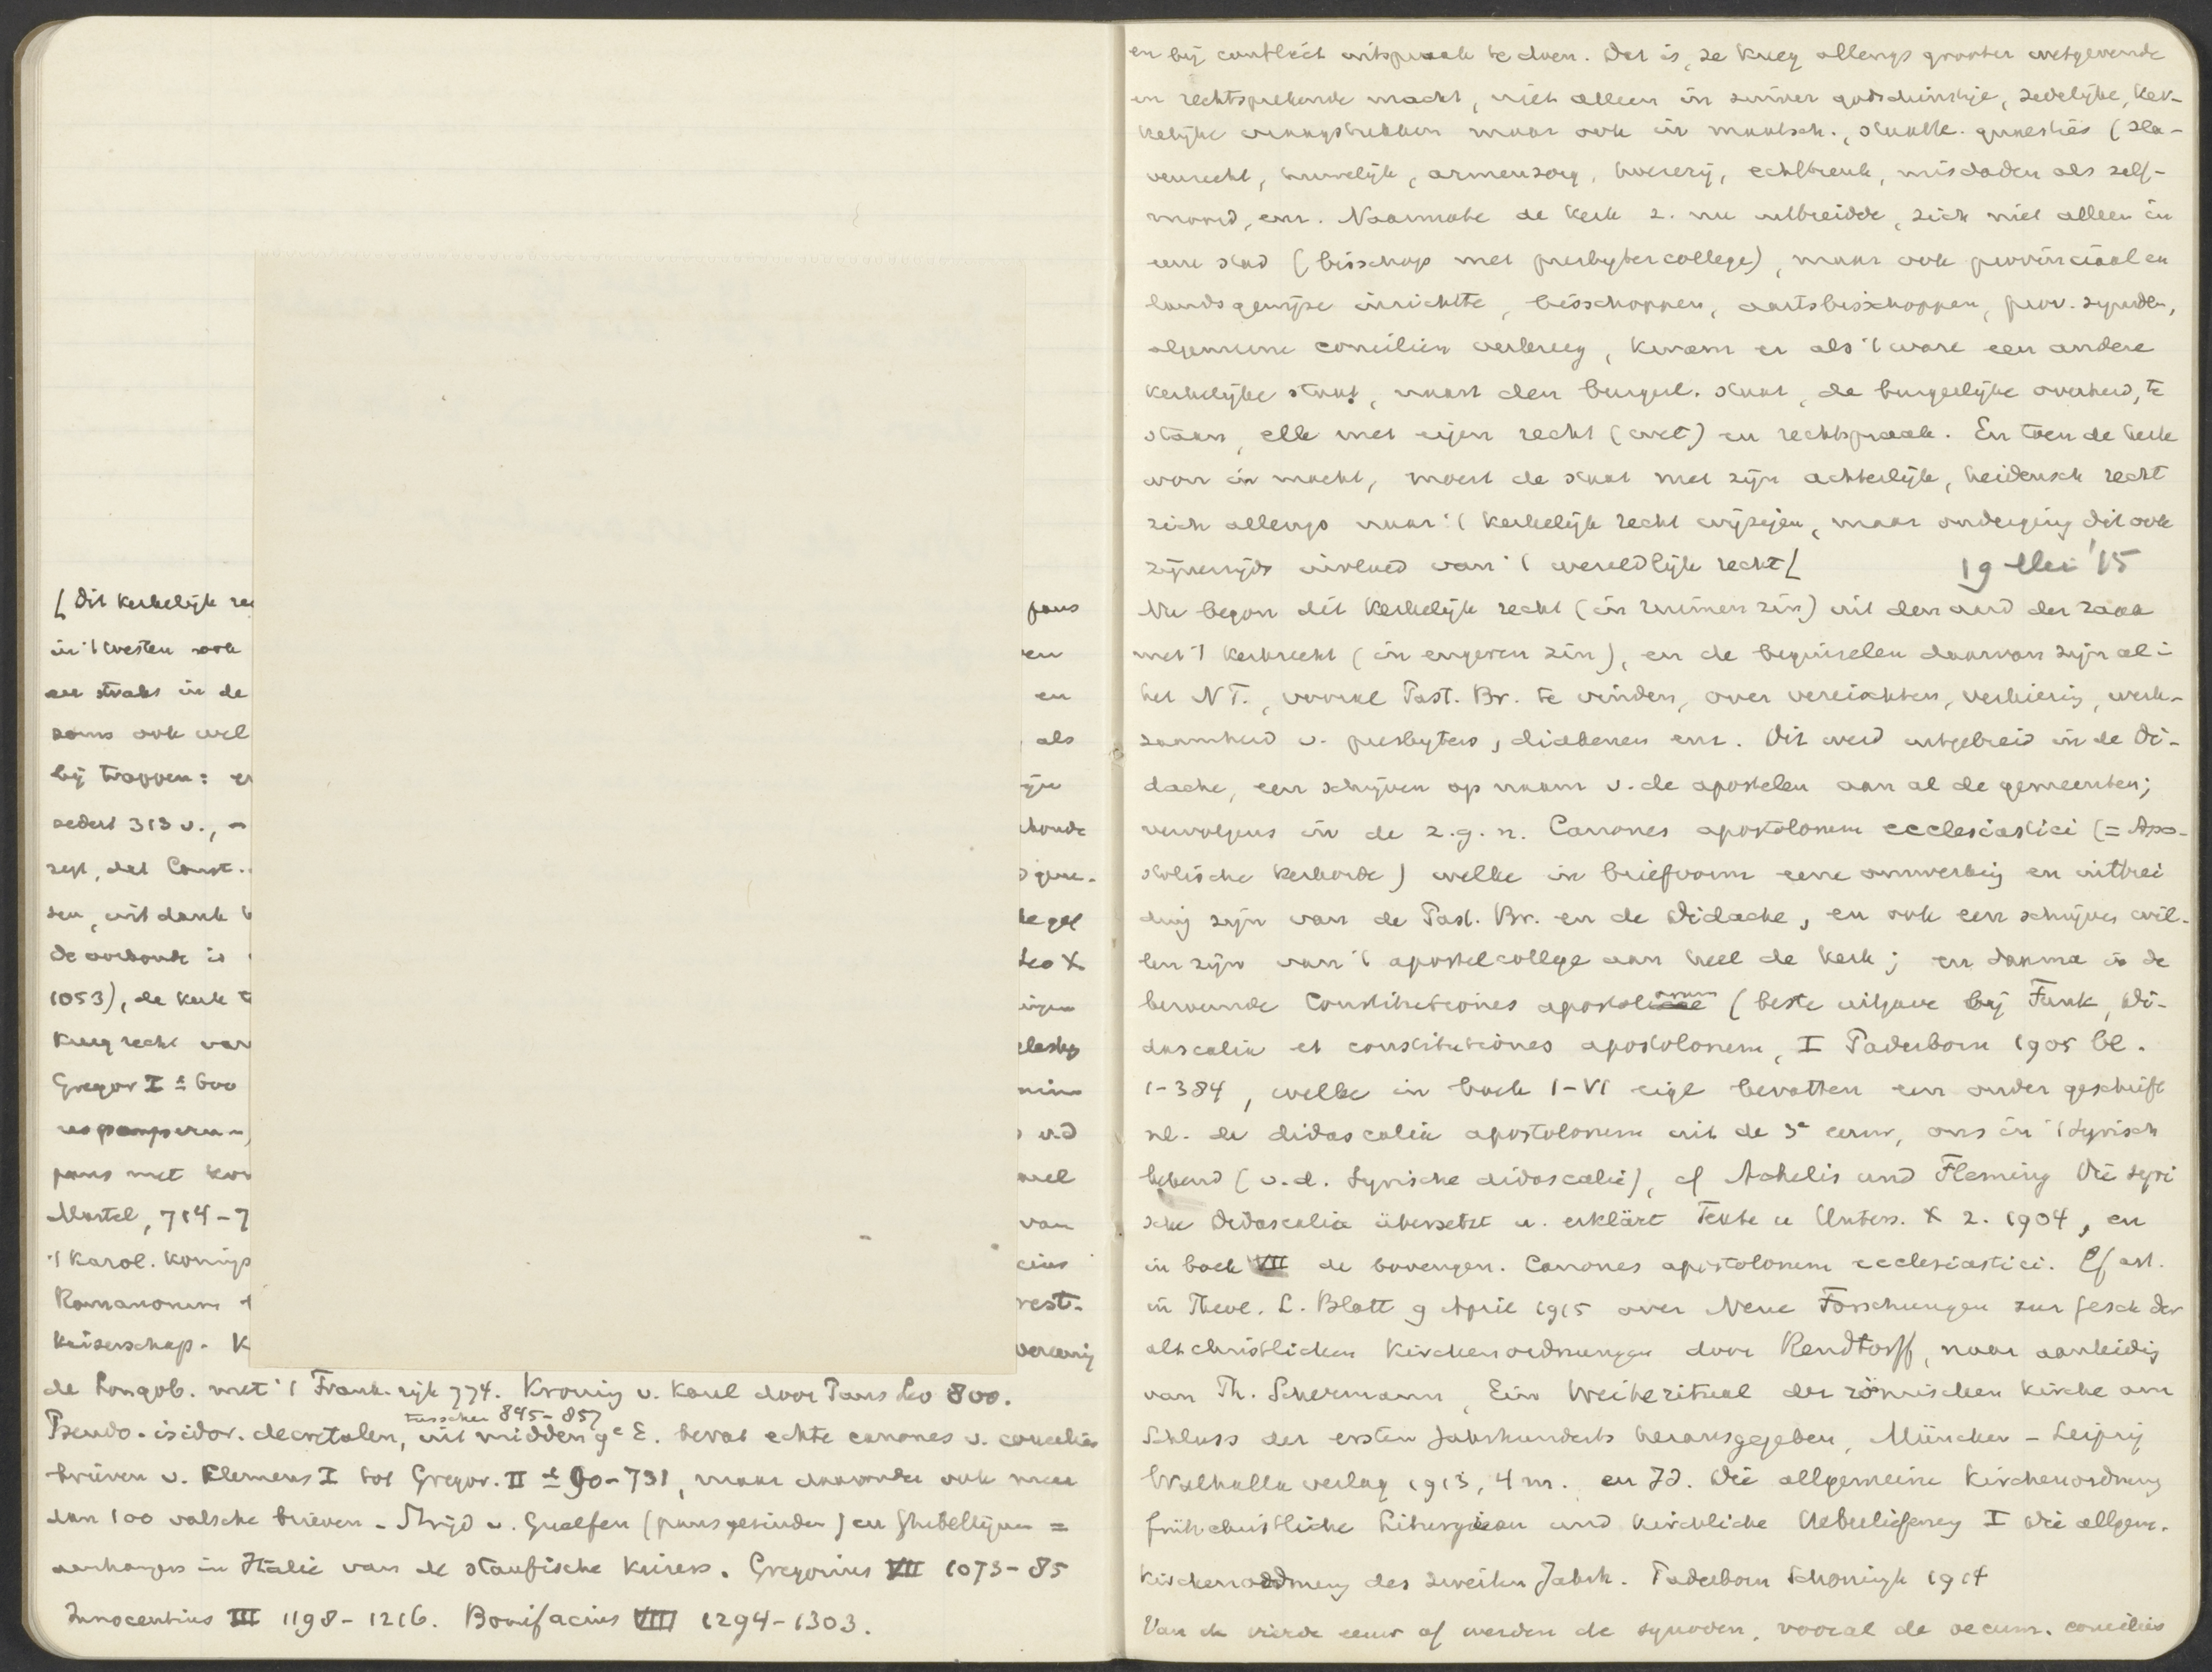 [Dit kerkelijk re
in 't westen ook
en straks in de
soms ook wel
bij trappen: e
sedert 313 v., –
zegt, dat Const.
sen, uit dank
de oorkonde is
1053), de kerk t
kreeg recht van
Gregor I ± 600
paus met kon
Martel, 714–7
't Karol. konigs
Romanorum
keizerschap. K
paus
en
en
als
zijn
rkonde
Leo X
u.d
wel
van
cius
rest.
vereenig
de Longob. met 't Frank. rijk 774. Kroning v. Karel door Paus Leo 800.
tusschen 845–857
Pseudo-isidor. decretalen, uit midden 9e E. bevat echte canones v. concilies
brieven v. Clemens I tot Gregor. II ± 90–731, maar daaronder ook meer
dan 100 valsche brieven – Strijd v. Guelfen (pausgezinden) en Ghibellijnen =
aanhangers in Italië van de staufische keizers. Gregorius VII 1073–85
Innocentius III 1198–1216. Bonifacius VIII 1294–1303.
en bij conflict uitspraak te doen. Dat is, ze kreeg allengs grooter wetgevende
en rechtsprekende macht, niet alleen in zuiver godsdienstige, zedelijke, ker-
kelijke vraagstukken maar ook in maatsch., staatk. quaesties (sla-
venrecht, huwelijk, armenzorg, hoererij, echtbreuk, misdaden als zelf-
moord, enz. Naarmate de kerk z. nu uitbreidde, zich niet alleen in
eene stad (bisschop met presbytercollege), maar ook provinciaal en
landsgewijze inrichtte, bisschoppen, aartsbisschoppen, prov. synoden,
algemeene conciliën verkreeg, kwam er als 't ware een andere
kerkelijke staat, naast den burgerl. staat, de burgerlijke overheid, te
staan, elk met eigen recht (wet) en rechtspraak. En toen de kerk
won in macht, moest de staat met zijn achterlijk, heidensch recht
zich allengs naar 't kerkelijk recht wijzigen, maar onderging dit ook
zijnerzijds invloed van 't wereldlijk recht [
19 Mei '15
Nu begon dit kerkelijk recht (in ruimen zin) uit den aard der zaak
met 't kerkrecht (in engeren zin), en de beginselen daarvan zijn al i
het NT., vooral Past. Br. te vinden, over vereischten, verkiezing, werk-
zaamheid v. presbyters, diakenen enz. Dit werd uitgebreid in de Di-
dache, een schrijven op naam v. de apostelen aan al de gemeenten;
vervolgens in de z.g.n. Canones apostolorum ecclesiastici (= Apo-
stolische kerkorde) welke in briefvorm eene omwerking en uitbrei
ding zijn van de Past. Br. en de Didache, en ook een schrijven wil-
len zijn van 't apostelcollege aan heel de kerk; en daarna in de
beroemde Constitutiones apostolorum (beste uitgave bij Funk, Di-
dascalia et constitutiones apostolorum, I Paderborn 1905 bl.
1–384, welke in boek I–VI eigl bevatten een ander geschrift
nl. de didascalia apostolorum uit de 3e eeuw, ons in 't Syrisch
bekend (v.d. Syrische didascalie), cf Achelis und Fleming Die syri
sche Didascalia übersetzt u. erklärt Texte u Unters. X 2. 1904, en
in boek VII de bovengen. Canones apostolorum ecclesiastici. Cf art.
in Theol. L. Blatt 9 April 1915 over Neue Forschungen zur Gesch der
altchristlichen Kirchenordnungen door Rendtorff, naar aanleidig
van Th. Schermann, Ein Weiheritual der römischen Kirche am
Schluss der ersten Jahrhunderts herausgegeben, München – Leipzig
Walhalla verlag 1913, 4 m. en Id. Die allgemeine Kirchenordnung
frühchristliche Liturgieen und kirchliche Ueberlieferung I Die allgem.
Kirchenordnung des zweiten Jahrh. Paderborn Schöningh 1914
Van de vierde eeuw af werden de synoden, vooral de oecum. conciliës